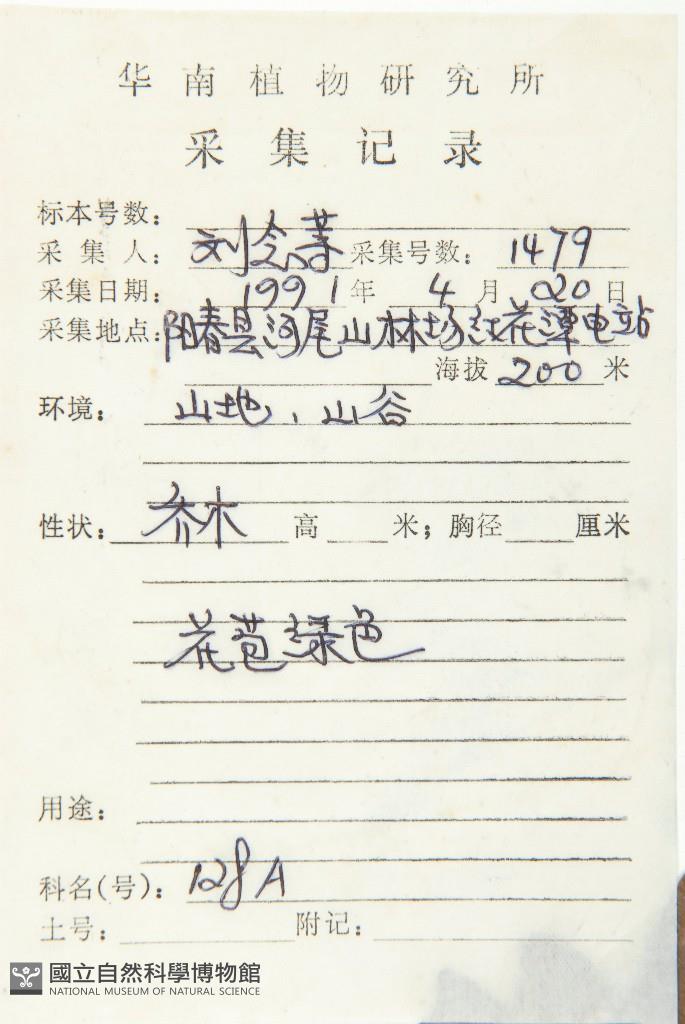 华南植物研究所
采集记录
标本号数：
采集人：刘念 采集号数：1479
采集日期：1991年4月020日
采集地点：阳春县河尾山林场红花潭电站
海拔200米
环境：山地，山谷
性状：乔木 高 米；胸径 厘米
花苞绿色
用途：
科名(号)：128A
土号： 附记：
國立自然科學博物館
NATIONAL MUSEUM OF NATURAL SCIENCE